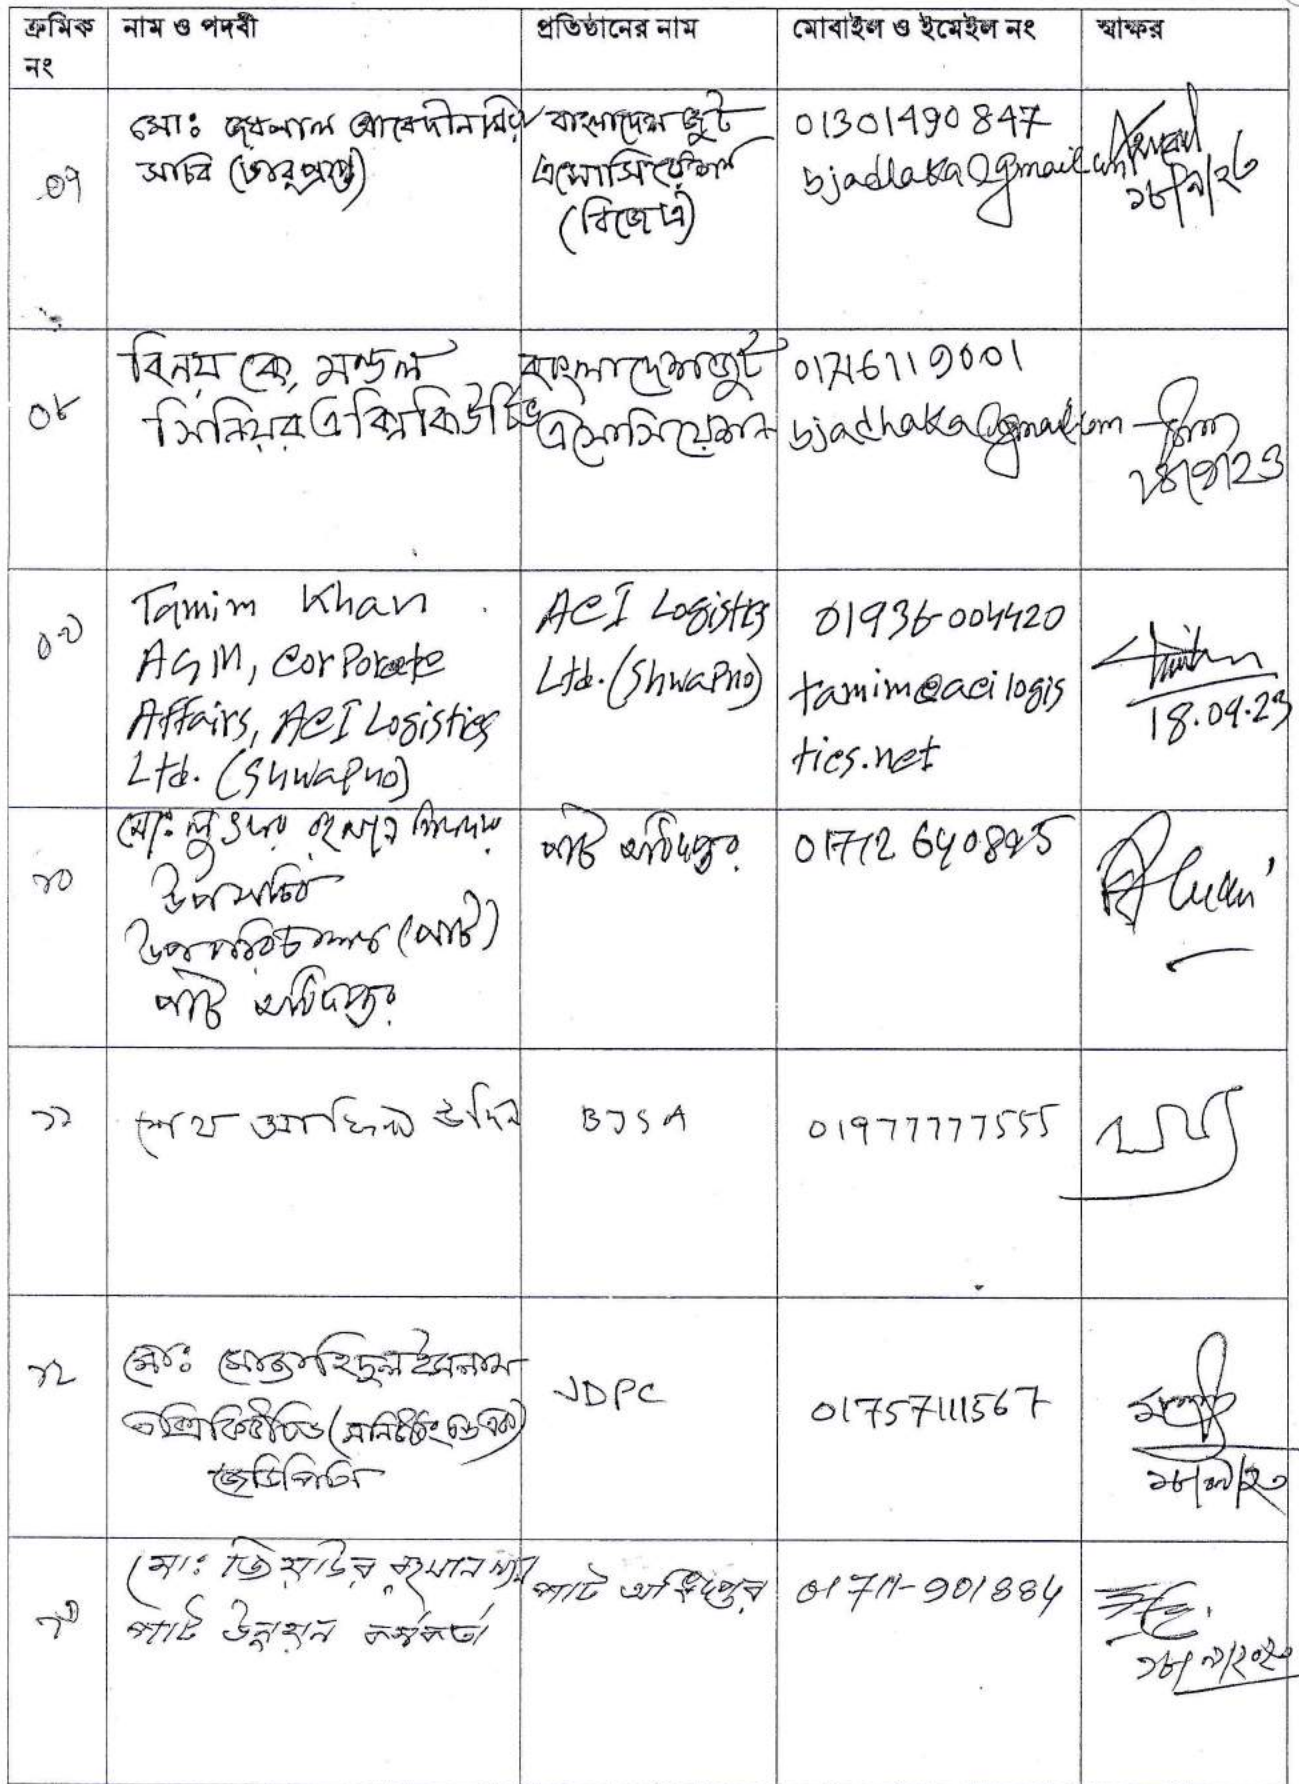 ক্রমিক নং
নাম ও পদবী
প্রতিষ্ঠানের নাম
মোবাইল ও ইমেইল নং
স্বাক্ষর
০৭
মোঃ আবেদীন
সচিব (ভারপ্রাপ্ত)
বাংলাদেশ জুট
এসোসিয়েশন
(বিজেএ)
01301490847
bjadhaka@gmail.com
১৮/৯/২৩
০৮
বিনয় কে, মন্ডল
সিনিয়র এক্সিকিউটিভ
বাংলাদেশ জুট
এসোসিয়েশন
01716119001
bjadhaka@gmail.com
18/9/23
০৯
Tamim Khan
AGM, Corporate
Affairs, ACI Logistics
Ltd. (Shwapno)
ACI Logistics
Ltd. (Shwapno)
01936-004420
tamim@acilogis
tics.net
18.09.23
১০
মোঃ লুৎফর রহমান
উপসচিব
উপপরিচালক (পাট)
পাট অধিদপ্তর
পাট অধিদপ্তর
১১
শেখ উদ্দিন
BJSA
01977777555
১২
মোঃ মোজাহিদুল ইসলাম
এক্সিকিউটিভ
জেডিপিসি
JDPC
01757111567
১৮/০৯/২৩
১৩
মোঃ জিয়াউর রহমান খান
পাট উন্নয়ন কর্মকর্তা
পাট অধিদপ্তর
01711-901884
১৮/৯/২০২৩